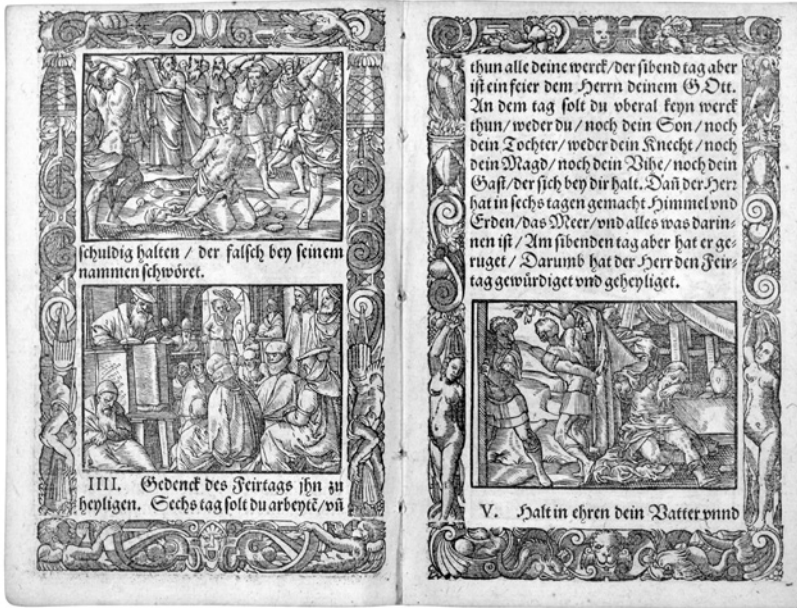 schuldig halten / der falsch bey seinem
nammen schwöret.
IIII. Gedenck des Feirtags jhn zu
heyligen. Sechs tag solt du arbeytẽ/vñ
thun alle deine werck/der sibend tag aber
ist ein feier dem Herrn deinem GOtt.
An dem tag solt du vberal keyn werck
thun/weder du/noch dein Son/noch
dein Tochter/weder dein Knecht/noch
dein Magd/noch dein Vihe/noch dein
Gast/der sich bey dir halt. Dañ der Herr
hat in sechs tagen gemacht Himmel vnd
Erden/das Meer/vnd alles was darin-
nen ist / Am sibenden tag aber hat er ge-
ruget / Darumb hat der Herr den Feir-
tag gewürdiget vnd geheyliget.
V. Halt in ehren dein Vatter vnnd